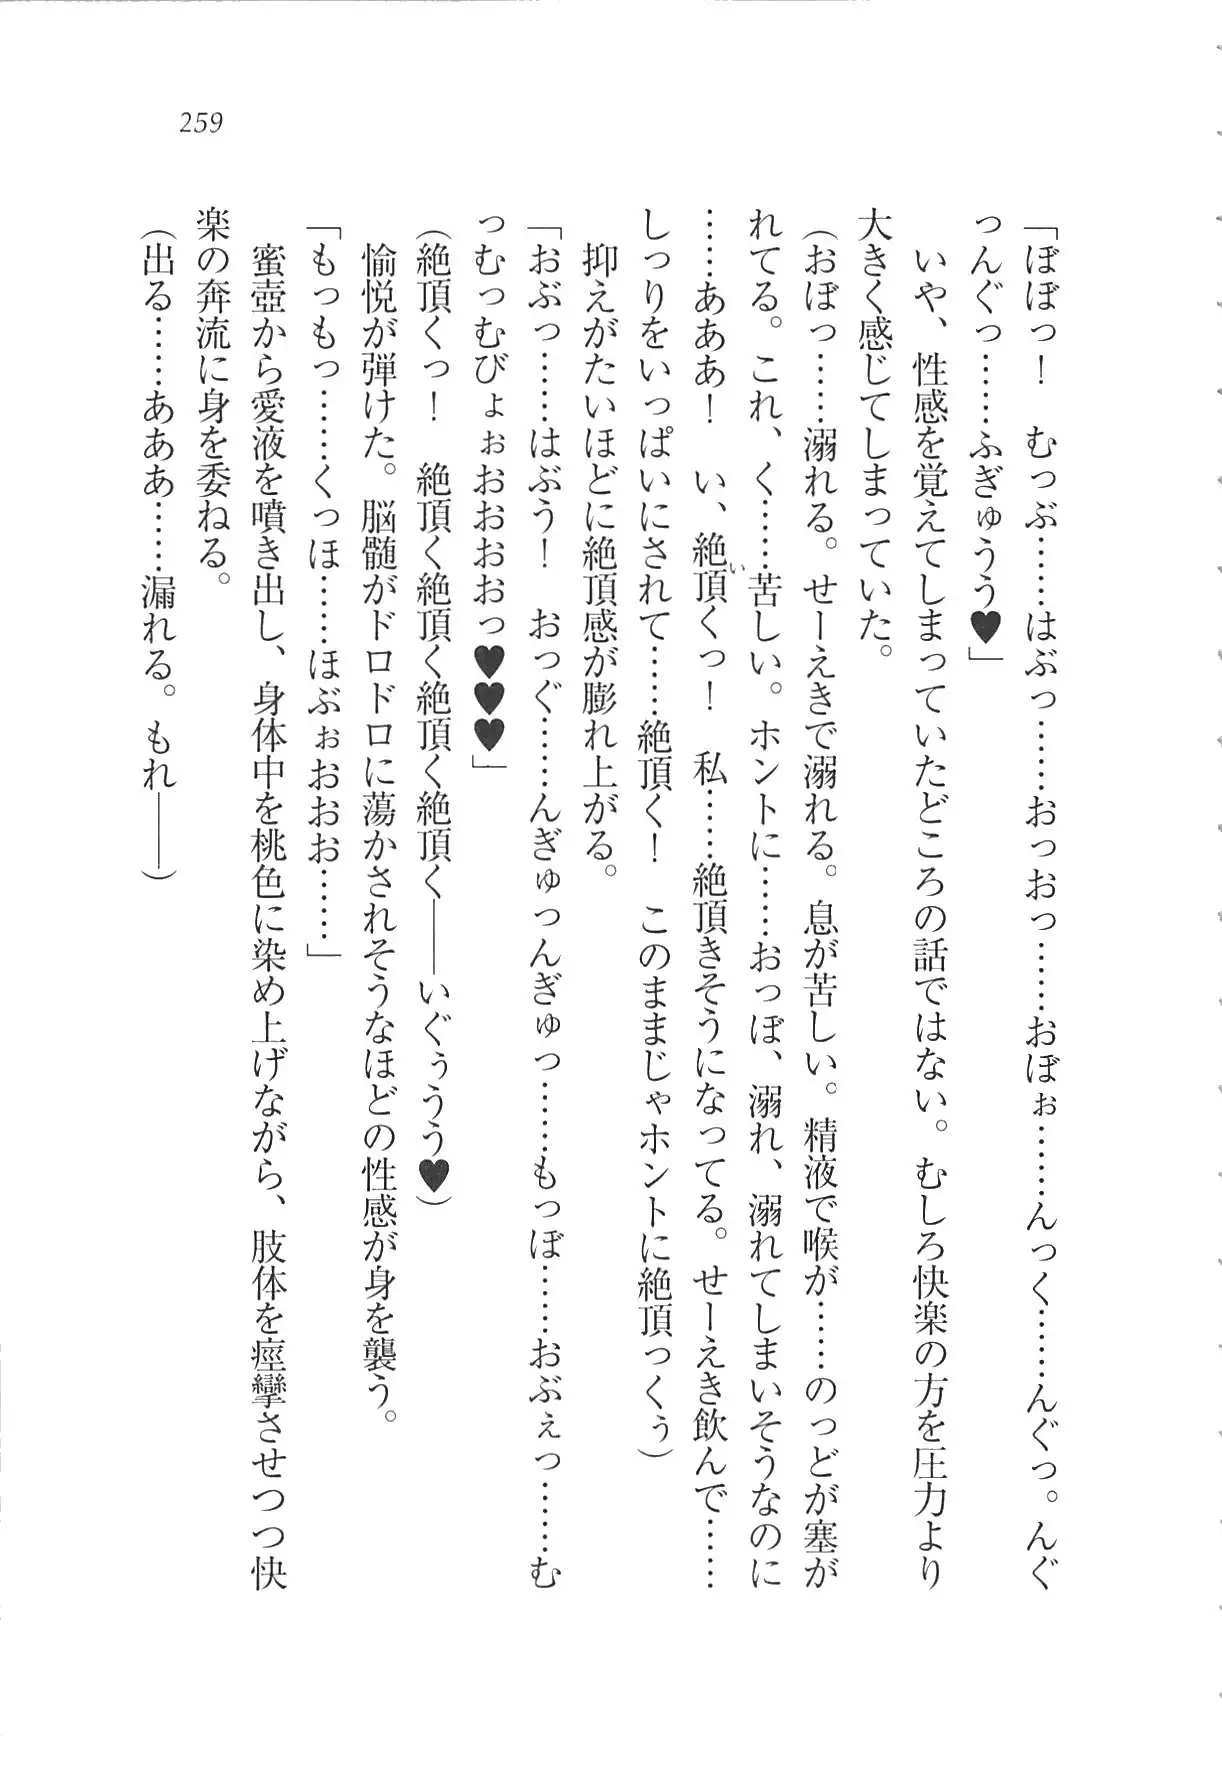 259
「ぼぼっ！　むっぶ……はぶっ……おっおっ……おぼぉ……んっく……んぐっ。んぐ
っんぐっ……ふぎゅうう♥」
　いや、性感を覚えてしまっていたどころの話ではない。むしろ快楽の方を圧力より
大きく感じてしまっていた。
（おぼっ……溺れる。せーえきで溺れる。息が苦しい。精液で喉が……のっどが塞が
れてる。これ、く……苦しい。ホントに……おっぼ、溺れ、溺れてしまいそうなのに
……あああ！　い、絶頂くっ！　私……絶頂きそうになってる。せーえき飲んで……
しっりをいっぱいにされて……絶頂く！　このままじゃホントに絶頂っくぅ）
　抑えがたいほどに絶頂感が膨れ上がる。
「おぶっ……はぶう！　おっぐ……んぎゅっんぎゅっ……もっぼ……おぶぇっ……む
っむっむびょぉおおおおっ♥♥♥」
（絶頂くっ！　絶頂く絶頂く絶頂く絶頂く――いぐぅうう♥）
　愉悦が弾けた。脳髄がドロドロに蕩かされそうなほどの性感が身を襲う。
「もっもっ……くっほ……ほぶぉおおお……」
　蜜壺から愛液を噴き出し、身体中を桃色に染め上げながら、肢体を痙攣させつつ快
楽の奔流に身を委ねる。
（出る……あああ……漏れる。もれ――）